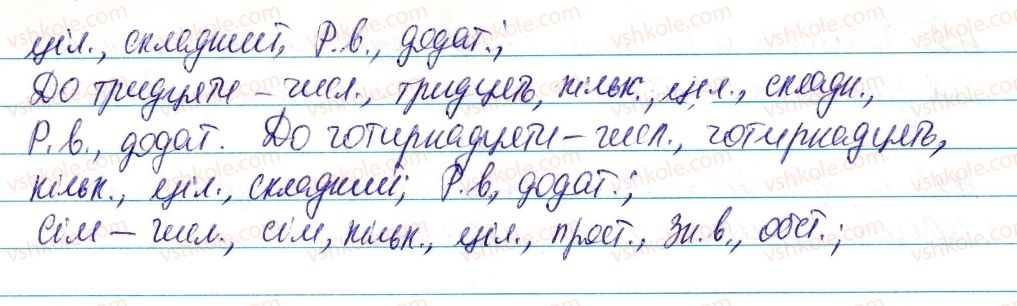 ціл., складний, Р.в., додат.;
До тридцяти – числ., тридцять, кільк., ціл., складн.,
Р.в., додат. До чотирнадцяти – числ., чотирнадцять,
кільк., ціл., складний; Р.в, додат.;
Сім – числ., сім, кільк., ціл., прост., Зн.в., обст.;